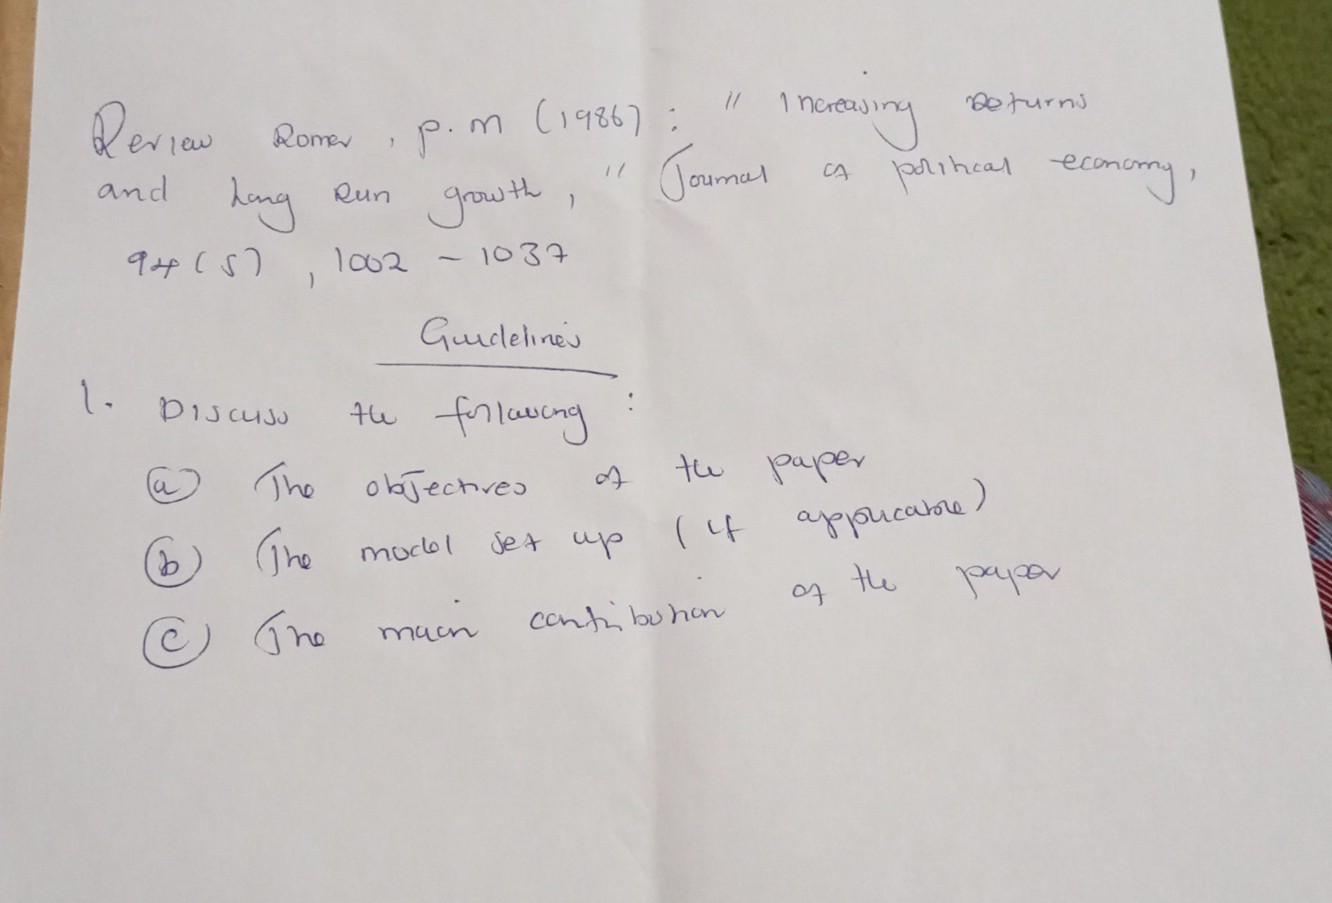 Review Romer, P.M (1986): " Increasing Returns
and Long Run growth, " Journal of political economy,
94(5), 1002 - 1037
Guidelines
1. Discuss the following:
(a) The objectives of the paper
(b) The model set up (if applicable)
(c) The main contribution of the paper